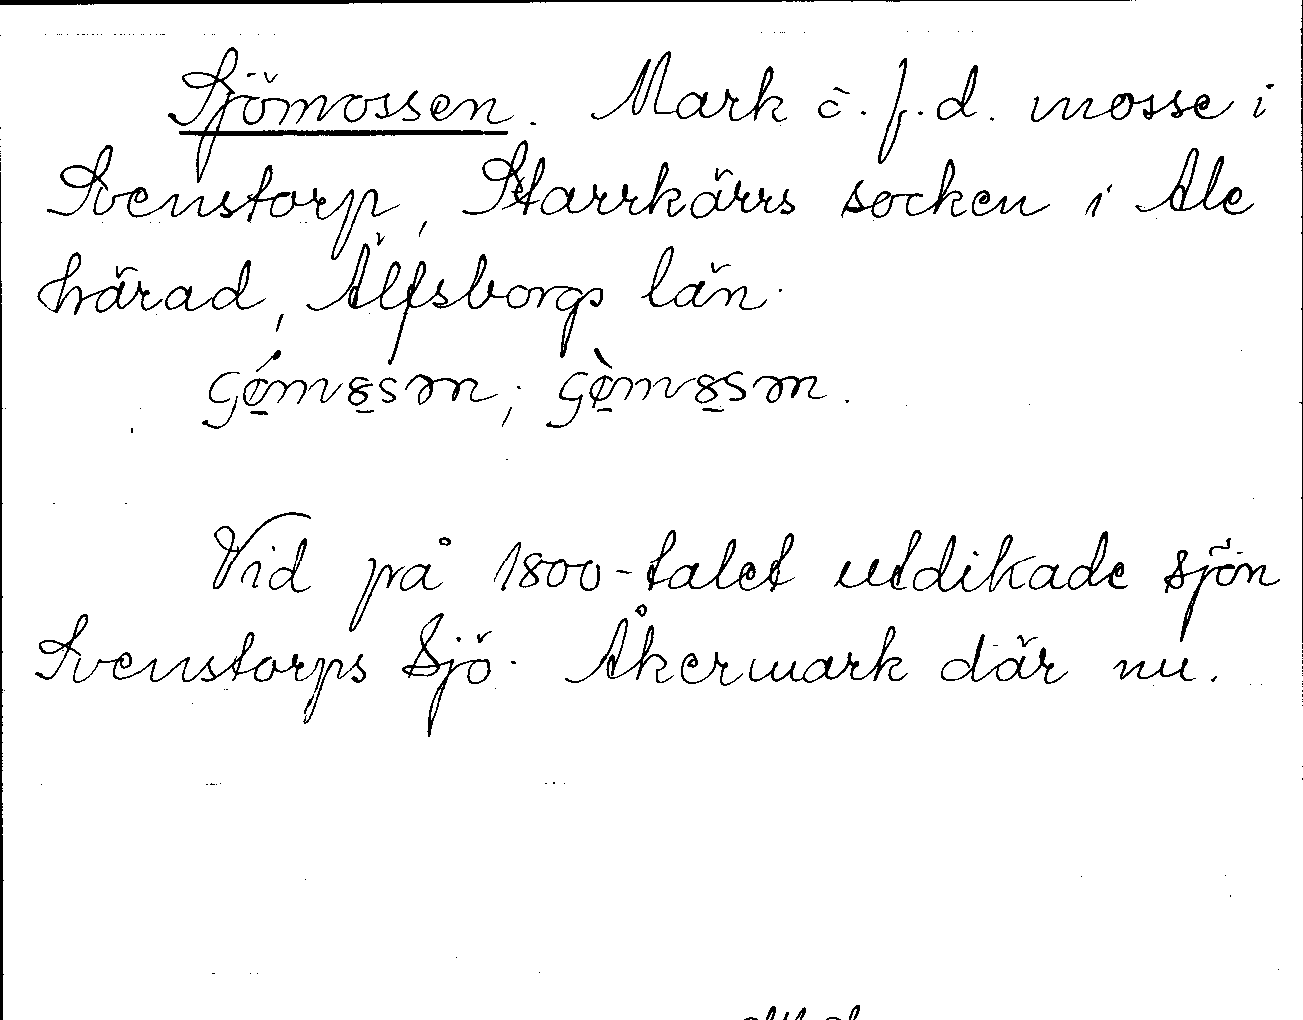 Sjömossen. Mark å f.d. mosse i
Svenstorp, Starrkärrs socken i Ale
härad, Älfsborgs län.
Vid på 1800-talet utdikade sjön
Svenstorps Sjö. Åkermark där nu.